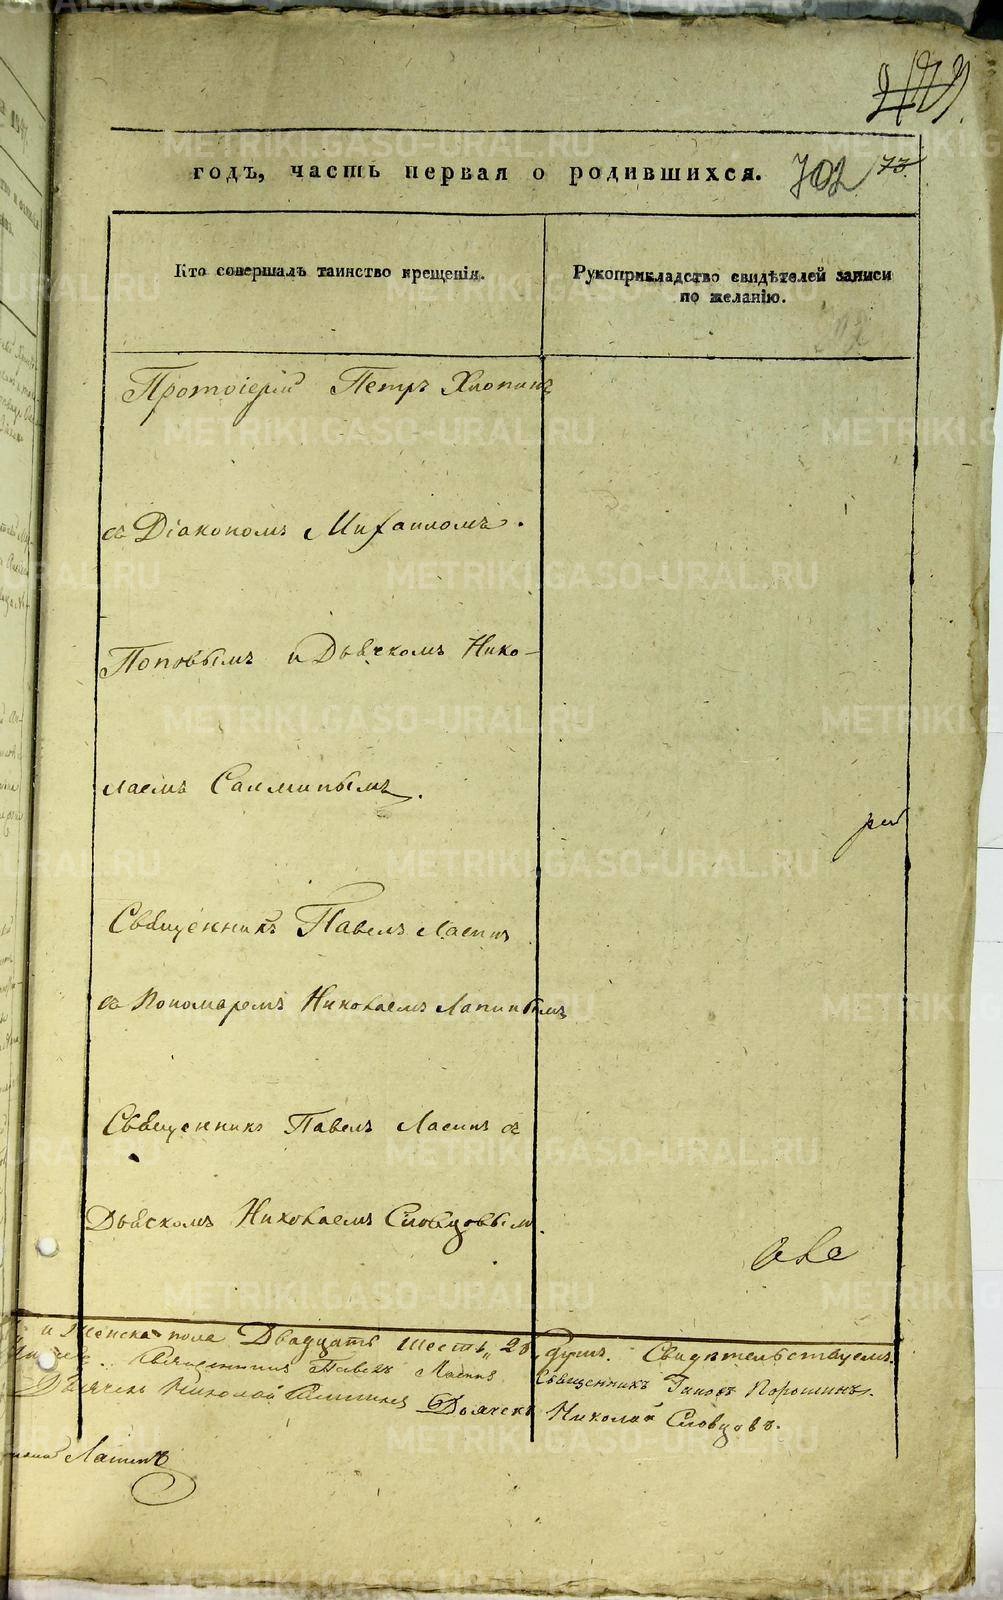 годъ, часть первая о родившихся. 702 73.
Кто совершалъ таинство крещенія.
Рукоприкладство свидѣтелей записи
по желанію.
Протоіерій Петръ Хлопинъ
съ Діакономъ Михаиломъ.
Поповымъ и Дьячкомъ Нико-
лаемъ Салминымъ.
Священникъ Павелъ Ласинъ
съ Пономаремъ Николаемъ Лапинымъ
Священникъ Павелъ Ласинъ съ
Дьячкомъ Николаемъ Словцовымъ.
и Женска пола Двадцать шесть „26„ душъ. Свидѣтельствуемъ.
Священникъ Павелъ Ласинъ Священникъ Порошинъ.
Дьячекъ Николай Дьячекъ Николай Словцовъ.
Лапинъ
METRIKI.GASO-URAL.RU